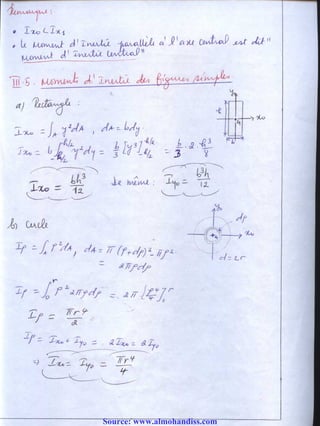 Remarque :
• Ixo < Ix1
• le moment d'Inertie parallèle à l'axe central est dit "
moment d'Inertie central"
III.5. Moments d'Inertie des figures simples.
a) Rectangle :
Ixo = ∫A y²dA , dA = bdy
Ixo = b ∫-h/2 h/2 y²dy = b/3 [y³]-h/2 h/2 = b/3 . 2 . h³/8
Ixo = bh³/12 de même : Iyo = b³h/12
h
b
yo
xo
b) Cercle
Ip = ∫A ρ²dA , dA = π(ρ+dρ)² - πρ²
= 2πρdρ
Ip = ∫0 r ρ² 2πρdρ = 2π [ρ⁴/4]0 r
Ip = πr⁴/2
Ip = Ixo + Iyo = 2Ixo = 2Iyo
⇒ Ixo = Iyo = πr⁴/4
yo
dρ
xo
d = 2r
Source: www.almohandiss.com